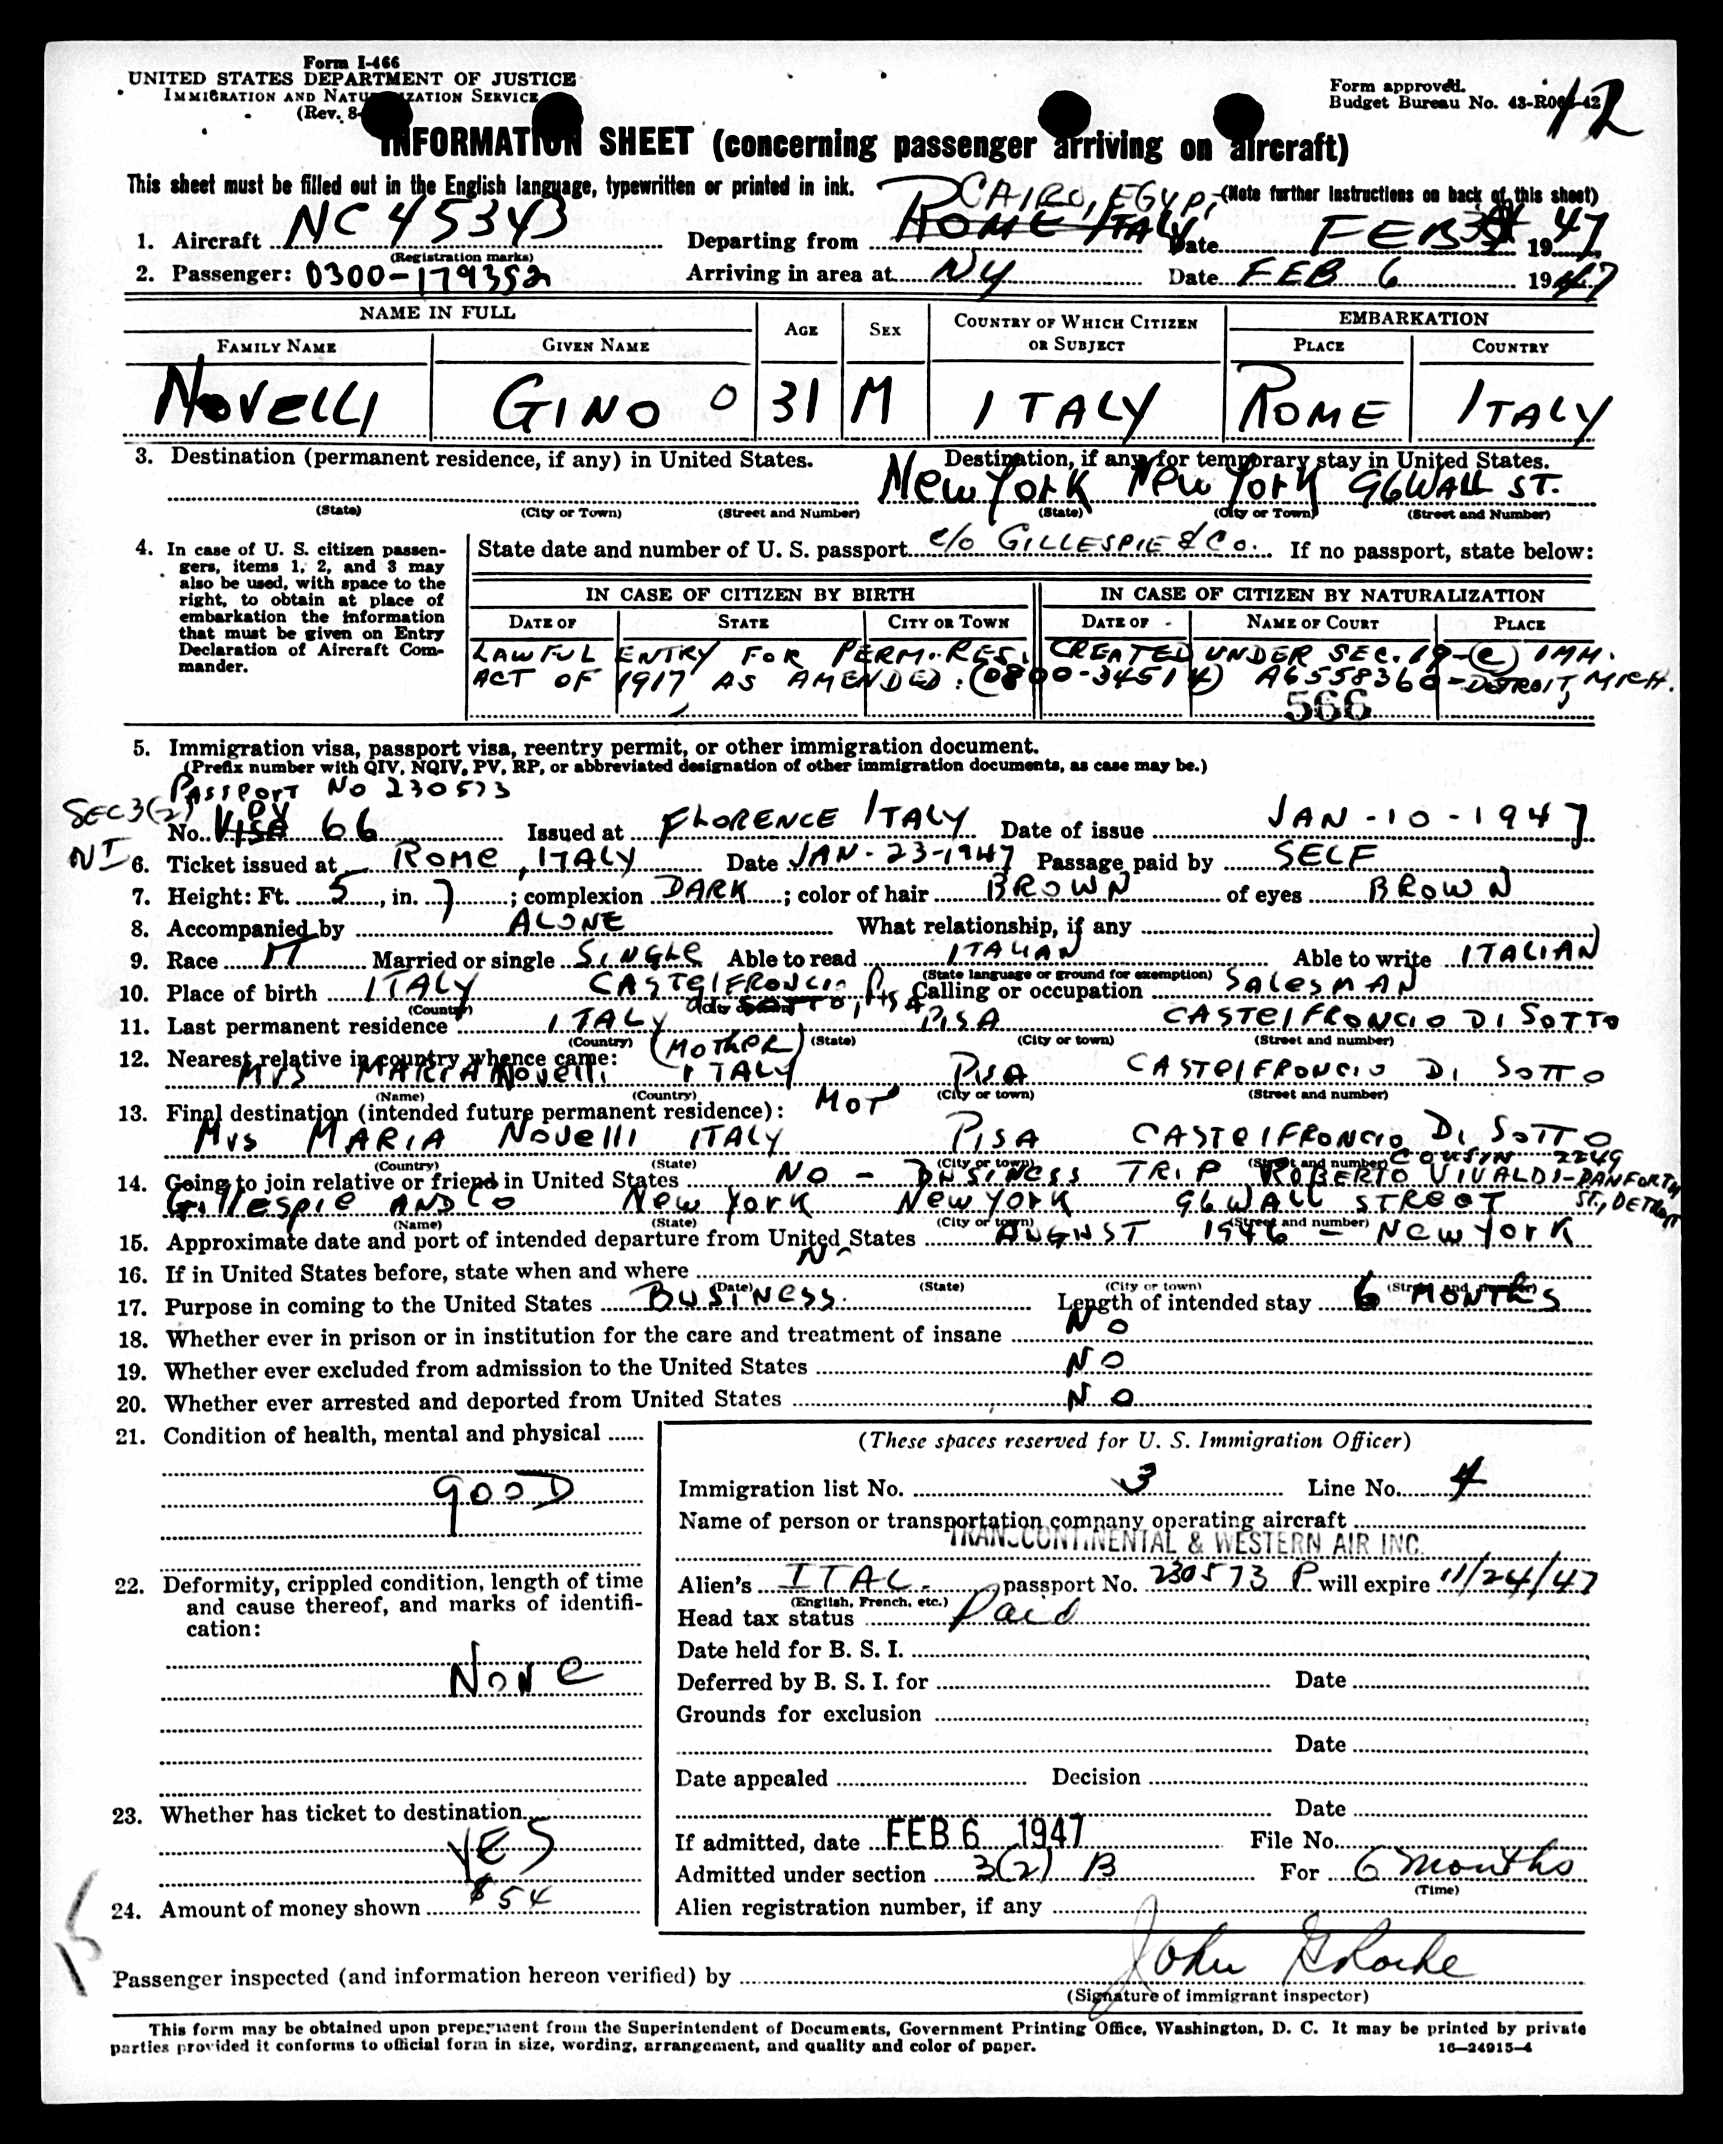 Form I-466
UNITED STATES DEPARTMENT OF JUSTICE
IMMIGRATION AND NATURALIZATION SERVICE
(Rev. 8-
Form approved.
Budget Bureau No. 43-R0 -42
12
INFORMATION SHEET (concerning passenger arriving on aircraft)
This sheet must be filled out in the English language, typewritten or printed in ink. (Note further instructions on back of this sheet)
CAIRO, EGYPT
1. Aircraft NC 45343 Departing from ROME ITALY Date FEB 1947
(Registration marks)
2. Passenger: 0300-179352 Arriving in area at NY Date FEB 6 1947
NAME IN FULL AGE SEX COUNTRY OF WHICH CITIZEN OR SUBJECT EMBARKATION
FAMILY NAME GIVEN NAME PLACE COUNTRY
NOVELLI GINO O 31 M ITALY ROME ITALY
3. Destination (permanent residence, if any) in United States. Destination, if any, for temporary stay in United States.
New York New York 96 WALL ST.
(State) (City or Town) (Street and Number) (State) (City or Town) (Street and Number)
4. In case of U. S. citizen passengers, items 1, 2, and 3 may also be used, with space to the right, to obtain at place of embarkation the information that must be given on Entry Declaration of Aircraft Commander.
State date and number of U. S. passport c/o GILLESPIE & Co. If no passport, state below:
IN CASE OF CITIZEN BY BIRTH IN CASE OF CITIZEN BY NATURALIZATION
DATE OF STATE CITY OR TOWN DATE OF NAME OF COURT PLACE
LAWFUL ENTRY FOR PERM. RES. CREATED UNDER SEC. 19-(c) IMM.
ACT OF 1917, AS AMENDED. (0800-34514) A6558360-DETROIT, MICH.
566
5. Immigration visa, passport visa, reentry permit, or other immigration document.
(Prefix number with QIV, NQIV, PV, RP, or abbreviated designation of other immigration documents, as case may be.)
PASSPORT No 230573
SEC 3(2)
NI
No. VISA PV 66 Issued at FLORENCE ITALY Date of issue JAN-10-1947
6. Ticket issued at ROME, ITALY Date JAN-23-1947 Passage paid by SELF
7. Height: Ft. 5, in. 7; complexion DARK; color of hair BROWN of eyes BROWN
8. Accompanied by ALONE What relationship, if any
9. Race IT Married or single SINGLE Able to read ITALIAN Able to write ITALIAN
(State language or ground for exemption)
10. Place of birth ITALY CASTELFRONCIO di SOTTO, PISA Calling or occupation SALESMAN
(Country)
11. Last permanent residence ITALY PISA CASTELFRONCIO DI SOTTO
(Country) (State) (City or town) (Street and number)
12. Nearest relative in country whence came: (MOTHER)
Mrs MARIA Novelli ITALY PISA CASTELFRONCIO DI SOTTO
(Name) (Country) (City or town) (Street and number)
13. Final destination (intended future permanent residence): MOT
Mrs MARIA Novelli ITALY PISA CASTELFRONCIO DI SOTTO
(Country) (State) (City or town) (Street and number)
COUSIN 2249
14. Going to join relative or friend in United States NO - BUSINESS TRIP ROBERTO VIVALDI-DANFORTH ST., DETROIT
Gillespie AND Co New York New York 96 WALL STREET
(Name) (State) (City or town) (Street and number)
15. Approximate date and port of intended departure from United States AUGUST 1946 - New York
16. If in United States before, state when and where No
(Date) (State) (City or town) (Street and number)
17. Purpose in coming to the United States BUSINESS. Length of intended stay 6 MONTHS
18. Whether ever in prison or in institution for the care and treatment of insane NO
19. Whether ever excluded from admission to the United States NO
20. Whether ever arrested and deported from United States NO
21. Condition of health, mental and physical
GOOD
22. Deformity, crippled condition, length of time and cause thereof, and marks of identification:
NONE
23. Whether has ticket to destination
YES
24. Amount of money shown $54
15
(These spaces reserved for U. S. Immigration Officer)
Immigration list No. 3 Line No. 4
Name of person or transportation company operating aircraft
TRANSCONTINENTAL & WESTERN AIR INC.
Alien's ITAL. passport No. 230573 P will expire 11/24/47
(English, French, etc.)
Head tax status Paid
Date held for B. S. I.
Deferred by B. S. I. for Date
Grounds for exclusion
Date
Date appealed Decision
Date
If admitted, date FEB 6 1947 File No.
Admitted under section 3(2) B For 6 months
(Time)
Alien registration number, if any
Passenger inspected (and information hereon verified) by John
(Signature of immigrant inspector)
This form may be obtained upon prepayment from the Superintendent of Documents, Government Printing Office, Washington, D. C. It may be printed by private
parties provided it conforms to official form in size, wording, arrangement, and quality and color of paper. 16—24915-4